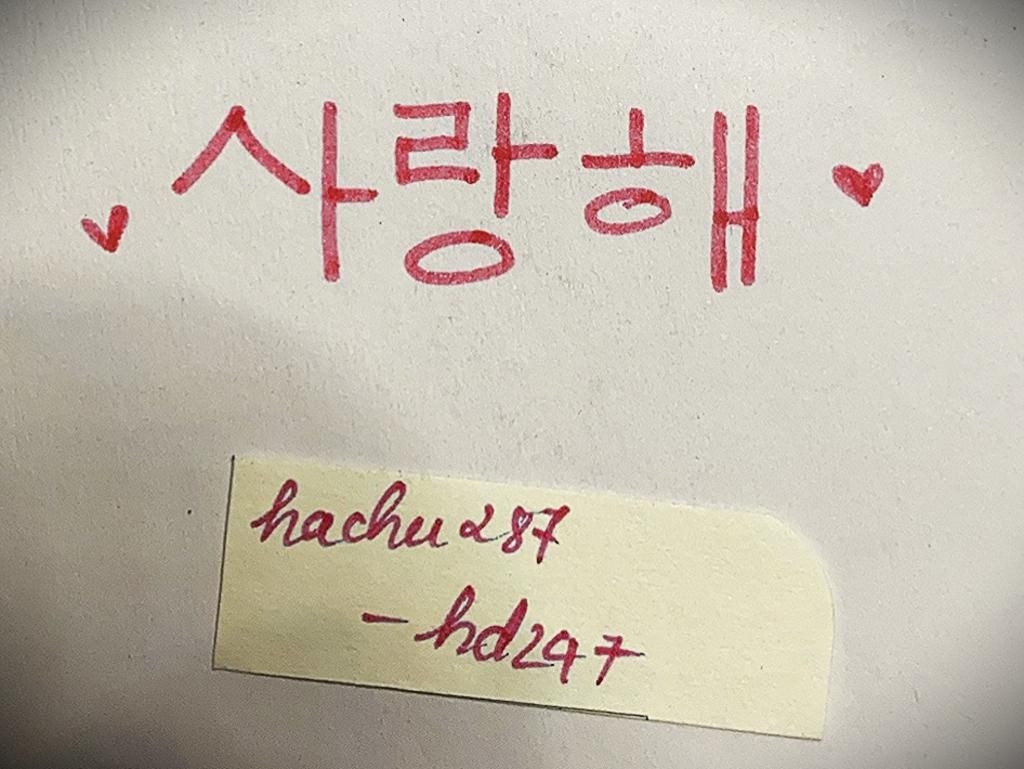 사랑해
hachu287
-hd297